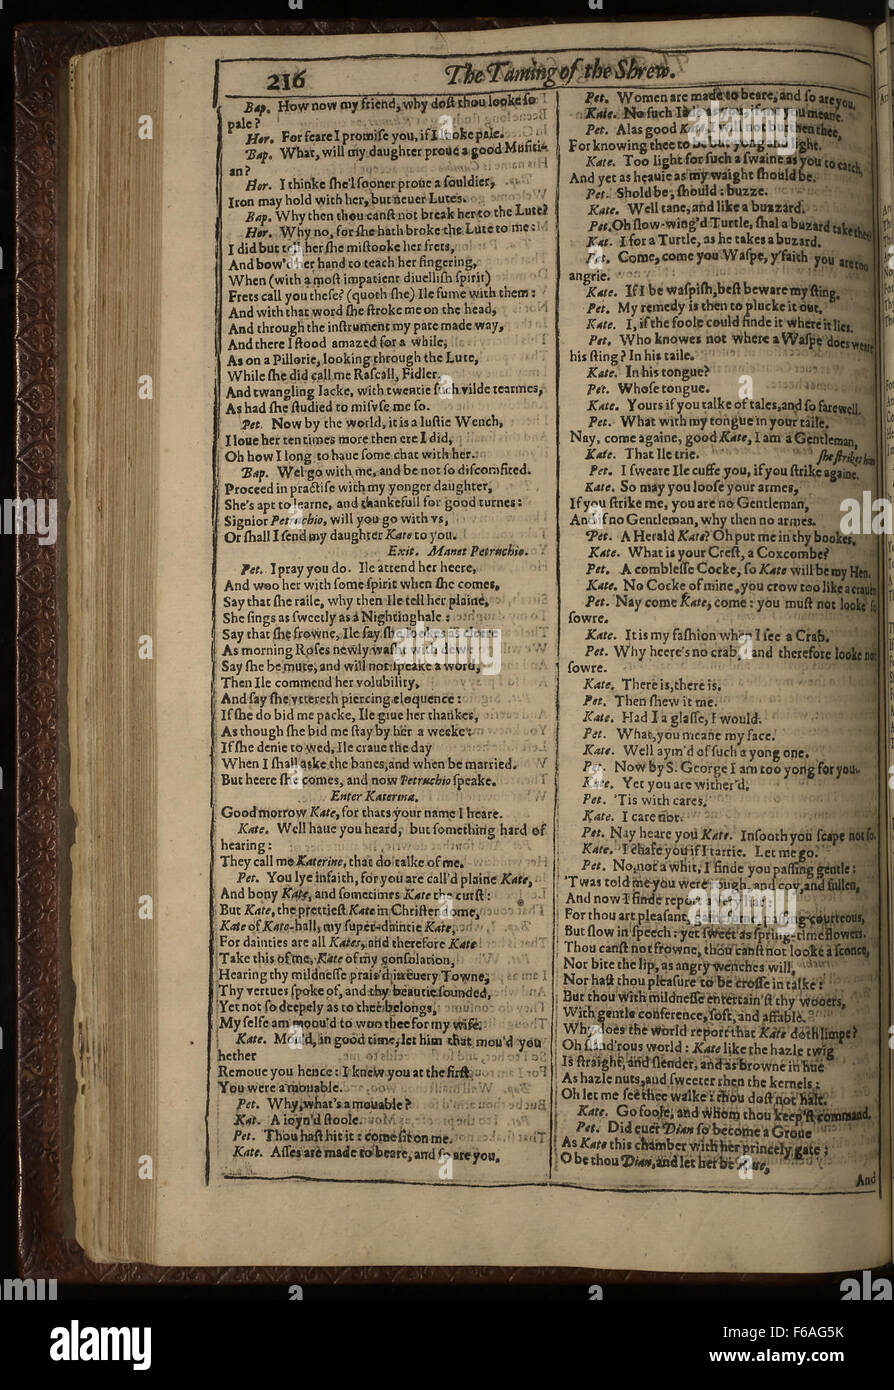 216
The Taming of the Shrew.
Bap. How now my friend, why doſt thou looke ſo
pale?
Hor. For feare I promiſe you, if I looke pale.
Bap. What, will my daughter proue a good Muſiti-
an?
Hor. I thinke ſhe'l ſooner proue a ſouldier,
Iron may hold with her, but neuer Lutes.
Bap. Why then thou canſt not break her to the Lute?
Hor. Why no, for ſhe hath broke the Lute to me:
I did but tell her ſhe miſtooke her frets,
And bow'd her hand to teach her fingering,
When (with a moſt impatient diuelliſh ſpirit)
Frets call you theſe? (quoth ſhe) Ile fume with them:
And with that word ſhe ſtroke me on the head,
And through the inſtrument my pate made way,
And there I ſtood amazed for a while,
As on a Pillorie, looking through the Lute,
While ſhe did call me Raſcall, Fidler,
And twangling Iacke, with twentie ſuch vilde tearmes,
As had ſhe ſtudied to miſvſe me ſo.
Pet. Now by the world, it is a luſtie Wench,
I loue her ten times more then ere I did,
Oh how I long to haue ſome chat with her.
Bap. Wel go with me, and be not ſo diſcomfited.
Proceed in practiſe with my yonger daughter,
She's apt to learne, and thankefull for good turnes:
Signior Petruchio, will you go with vs,
Or ſhall I ſend my daughter Kate to you.
Exit. Manet Petruchio.
Pet. I pray you do. Ile attend her heere,
And woo her with ſome ſpirit when ſhe comes,
Say that ſhe raile, why then Ile tell her plaine,
She ſings as ſweetly as a Nightinghale:
Say that ſhe frowne, Ile ſay ſhe lookes as cleere
As morning Roſes newly waſht with dew:
Say ſhe be mute, and will not ſpeake a word,
Then Ile commend her volubility,
And ſay ſhe vttereth piercing eloquence:
If ſhe do bid me packe, Ile giue her thankes,
As though ſhe bid me ſtay by her a weeke:
If ſhe denie to wed, Ile craue the day
When I ſhall aske the banes, and when be married.
But heere ſhe comes, and now Petruchio ſpeake.
Enter Katerina.
Good morrow Kate, for thats your name I heare.
Kate. Well haue you heard, but ſomething hard of
hearing:
They call me Katerine, that do talke of me.
Pet. You lye infaith, for you are call'd plaine Kate,
And bony Kate, and ſometimes Kate the curſt:
But Kate, the prettieſt Kate in Chriſtendome,
Kate of Kate-hall, my ſuper-daintie Kate,
For dainties are all Kates, and therefore Kate
Take this of me, Kate of my conſolation,
Hearing thy mildneſſe prais'd in euery Towne,
Thy vertues ſpoke of, and thy beautie ſounded,
Yet not ſo deepely as to thee belongs,
My ſelfe am moou'd to woo thee for my wife.
Kate. Mou'd, in good time, let him that mou'd you
hether
Remoue you hence: I knew you at the firſt
You were a mouable.
Pet. Why, what's a mouable?
Kat. A ioyn'd ſtoole.
Pet. Thou haſt hit it: come ſit on me.
Kate. Aſſes are made to beare, and ſo are you.
Pet. Women are made to beare, and ſo are you.
Kate. No ſuch Iade as you, if me you meane.
Pet. Alas good Kate, I will not burthen thee,
For knowing thee to be but yong and light.
Kate. Too light for ſuch a ſwaine as you to catch,
And yet as heauie as my waight ſhould be.
Pet. Shold be, ſhould: buzze.
Kate. Well tane, and like a buzzard.
Pet. Oh ſlow-wing'd Turtle, ſhal a buzard take thee?
Kat. I for a Turtle, as he takes a buzard.
Pet. Come, come you Waſpe, y'faith you are too
angrie.
Kate. If I be waſpiſh, beſt beware my ſting.
Pet. My remedy is then to plucke it out.
Kate. I, if the foole could finde it where it lies.
Pet. Who knowes not where a Waſpe does weare
his ſting? In his taile.
Kate. In his tongue?
Pet. Whoſe tongue.
Kate. Yours if you talke of tales, and ſo farewell.
Pet. What with my tongue in your taile.
Nay, come againe, good Kate, I am a Gentleman,
Kate. That Ile trie. ſhe ſtrikes him
Pet. I ſweare Ile cuffe you, if you ſtrike againe.
Kate. So may you looſe your armes,
If you ſtrike me, you are no Gentleman,
And if no Gentleman, why then no armes.
Pet. A Herald Kate? Oh put me in thy bookes.
Kate. What is your Creſt, a Coxcombe?
Pet. A combleſſe Cocke, ſo Kate will be my Hen.
Kate. No Cocke of mine, you crow too like a crauen
Pet. Nay come Kate, come: you muſt not looke ſo
ſowre.
Kate. It is my faſhion when I ſee a Crab.
Pet. Why heere's no crab, and therefore looke not
ſowre.
Kate. There is, there is.
Pet. Then ſhew it me.
Kate. Had I a glaſſe, I would.
Pet. What, you meane my face.
Kate. Well aym'd of ſuch a yong one.
Pet. Now by S. George I am too yong for you.
Kate. Yet you are wither'd.
Pet. 'Tis with cares.
Kate. I care not.
Pet. Nay heare you Kate. Inſooth you ſcape not ſo.
Kate. I chafe you if I tarrie. Let me go.
Pet. No, not a whit, I finde you paſſing gentle:
'Twas told me you were rough, and coy, and ſullen,
And now I finde report a very liar:
For thou art pleaſant, gameſome, paſſing courteous,
But ſlow in ſpeech: yet ſweet as ſpring-time flowers.
Thou canſt not frowne, thou canſt not looke a ſconce,
Nor bite the lip, as angry wenches will,
Nor haſt thou pleaſure to be croſſe in talke:
But thou with mildneſſe entertain'ſt thy wooers,
With gentle conference, ſoft, and affable.
Why does the world report that Kate doth limpe?
Oh ſland'rous world: Kate like the hazle twig
Is ſtraight, and ſlender, and as browne in hue
As hazle nuts, and ſweeter then the kernels:
Oh let me ſee thee walke: thou doſt not halt.
Kate. Go foole, and whom thou keep'ſt command.
Pet. Did euer Dian ſo become a Groue
As Kate this chamber with her princely gate:
O be thou Dian, and let her be Kate,
And
alamy stock photo
F6AG5K
www.alamy.com